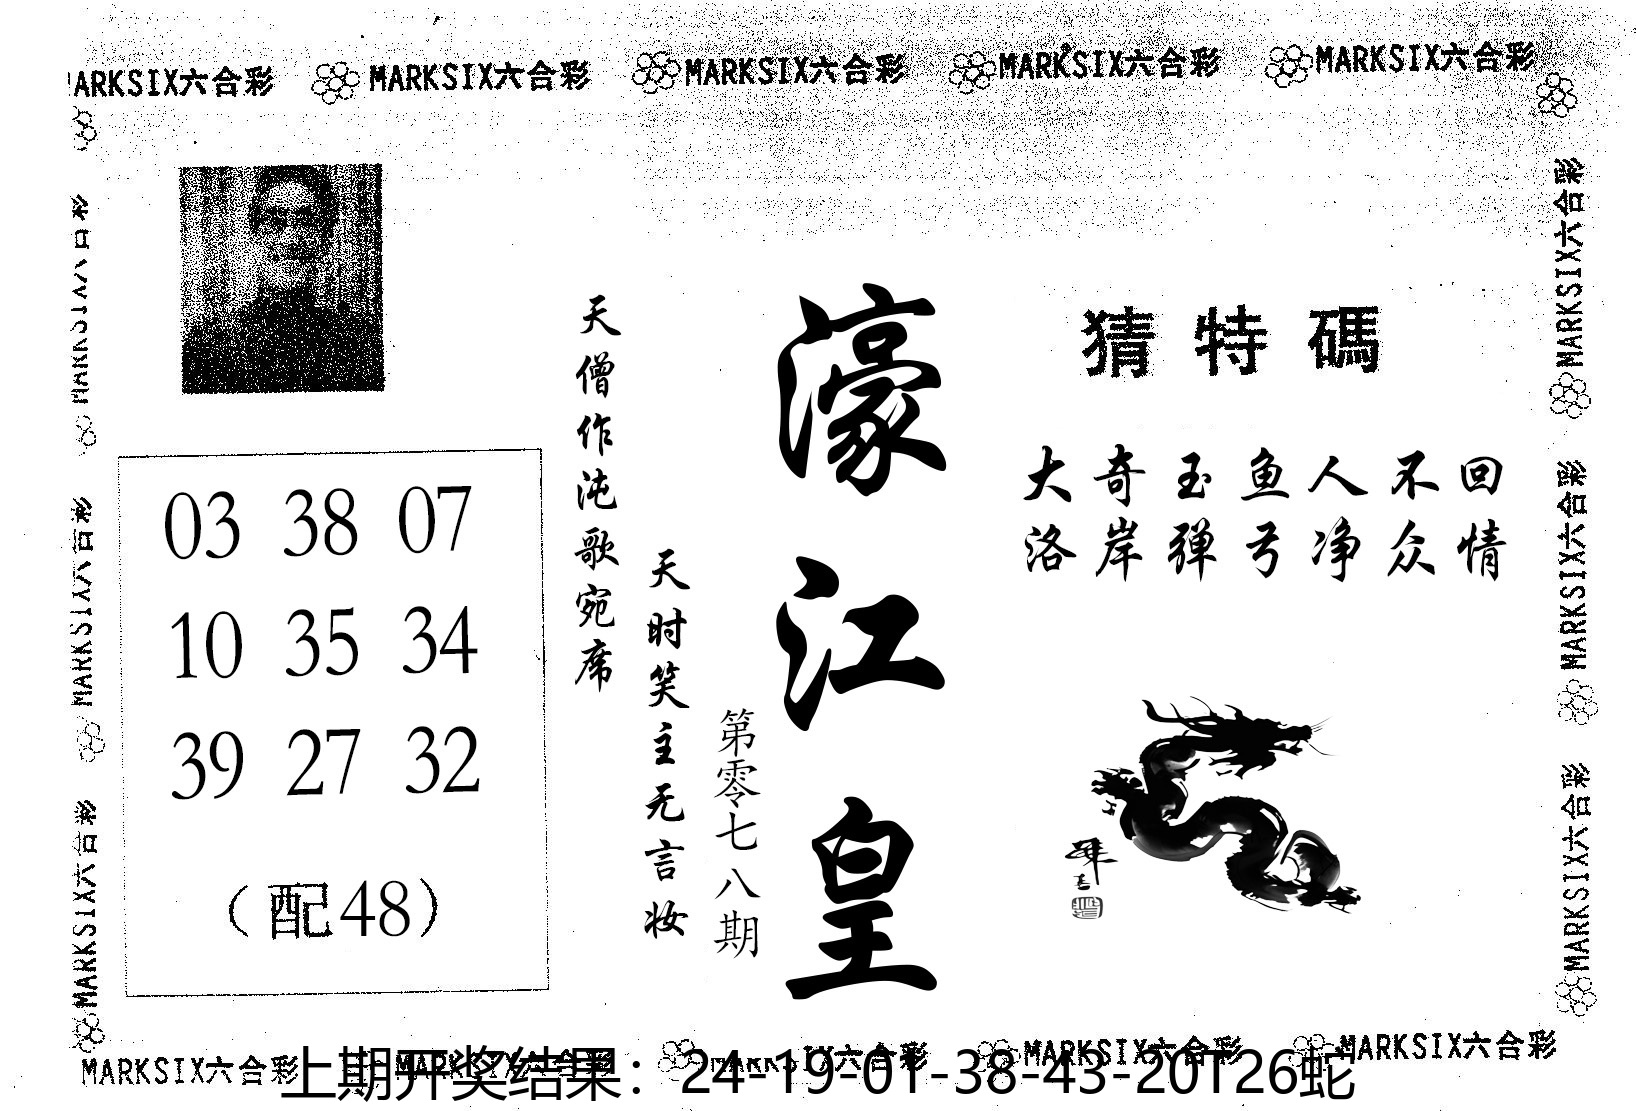 MARKSIX六合彩 MARKSIX六合彩 MARKSIX六合彩 MARKSIX六合彩 MARKSIX六合彩
猜特碼
大奇玉鱼人不回
洛岸弹弓净众情
濠江皇
第零七八期
天时笑主无言妆
天僧作沌歌宛席
03 38 07
10 35 34
39 27 32
（配48）
MARKSIX六合彩 MARKSIX六合彩 MARKSIX六合彩
MARKSIX六合彩 MARKSIX六合彩 MARKSIX六合彩
MARKSIX六合彩 MARKSIX六合彩 MARKSIX六合彩 MARKSIX六合彩 MARKSIX六合彩
上期开奖结果：24-19-01-38-43-20T26蛇